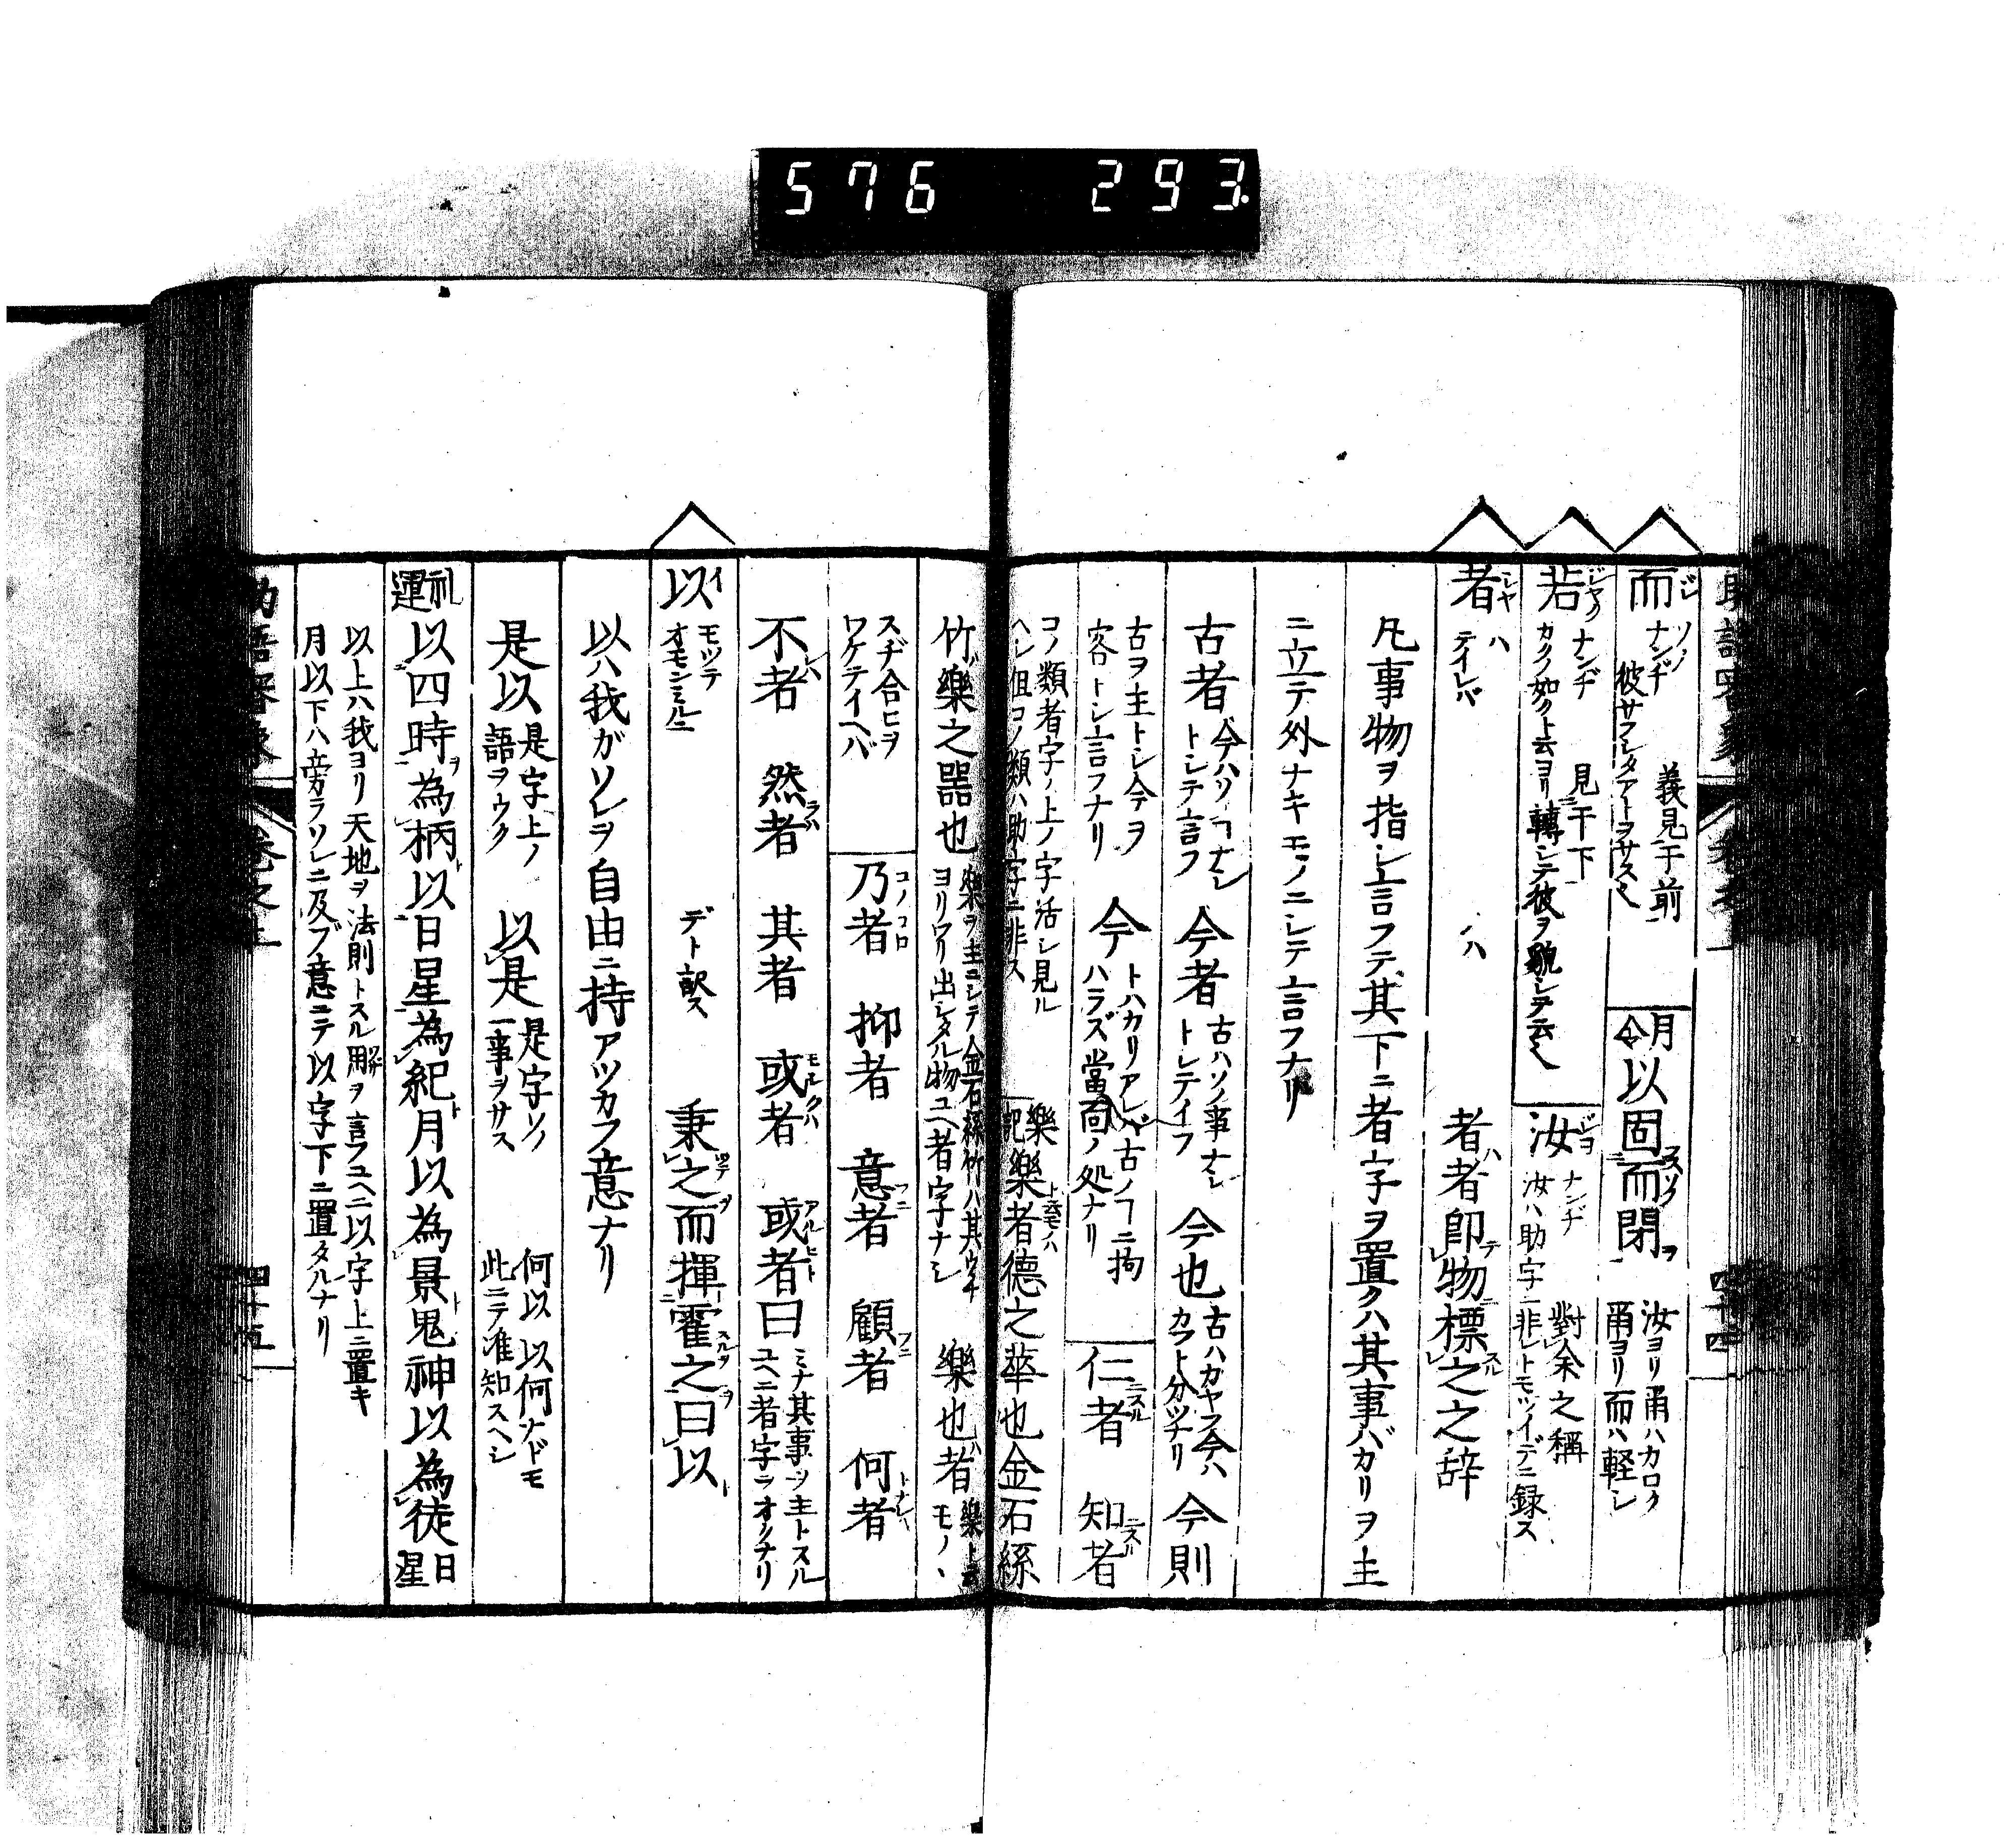 576 293
而 ソノ ナンヂ 彼サフシタアトヲサスヘ 義見于前 月令 以固而閉 汝ヨリ甬ハカロク 甬ヨリ而ハ軽シ
若 ナンヂ 見于下 カクノ如クト云ヨリ轉シテ彼ヲ貌シテ云ヘ 汝 ナンヂ 對余之稱 汝ハ助字ニ非レトモツイデニ録ス
者 ハ テイレバ ハ 者者即物標之之辞
凡事物ヲ指シ言フテ其下ニ者字ヲ置クハ其事バカリヲ主
ニ立テ外ナキモノニシテ言フナリ
古者 今ハソノ﹁ナシ トシテ言フ 今者 古ハソノ事ナシ トシテイフ 今也 古ハカヤス今ハ カクト分ツナリ 今則
古ヲ主トシ今ヲ 客トシ言フナリ 今 トハカリアレバ古ノ﹁ニ拘 ハラズ當面ノ処ナリ 仁者 知者
コノ類者字ノ上ノ字活シ見ル ヘシ但コノ類ハ助字ニ非ス 樂記 樂者德之華也金石絲
竹樂之噐也 樂ヲ主ニシテ金石絲竹ハ其ウチ ヨリワリ出シタル物ユヘ者字ナシ 樂也者 樂ト云 モノハ
スヂ合ヒヲ ワケテイヘバ 乃者 抑者 意者 顧者 何者
不者 然者 其者 或者 或者曰 ミナ其事ヲ主トスル ユヘニ者字ヲオクナリ
以 モツテ オモンミルニ デト訳ス 秉之而揮霍之曰以
以ハ我ガソレヲ自由ニ持アツカフ意ナリ
是以 是字上ノ 語ヲウク 以是 是字ソノ 一事ヲサス 何以以何ナドモ 此ニテ准知スヘシ
礼運 以四時為柄以日星為紀月以為景鬼神以為徒 日星
以上ハ我ヨリ天地ヲ法則トスル用ヲ言フユヘニ以字上ニ置キ
月以下ハ旁ラソレニ及ブ意ニテ以字下ニ置タルナリ